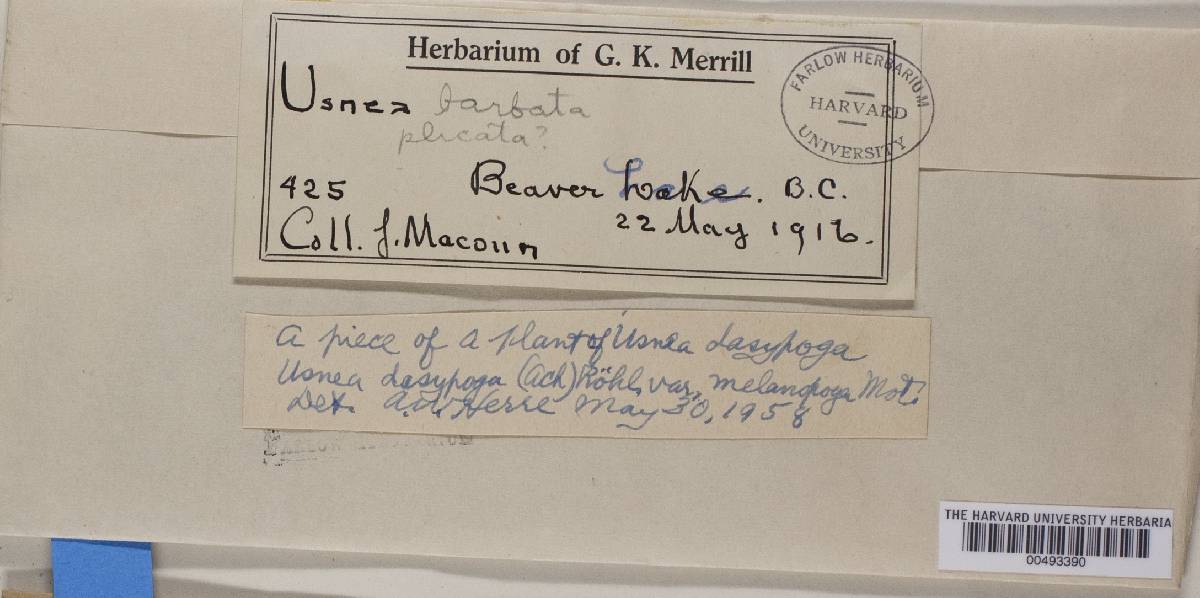 Herbarium of G. K. Merrill
FARLOW HERBARIUM
HARVARD
UNIVERSITY
Usnea barbata
plicata?
425 Beaver Lake. B.C.
Coll. J. Macoun 22 May 1916.
A piece of a plant of Usnea dasypoga
Usnea dasypoga (Ach) Röhl, var. melanopoga Mot.
Det. A.W. Herre May 30, 1958
THE HARVARD UNIVERSITY HERBARIA
00493390